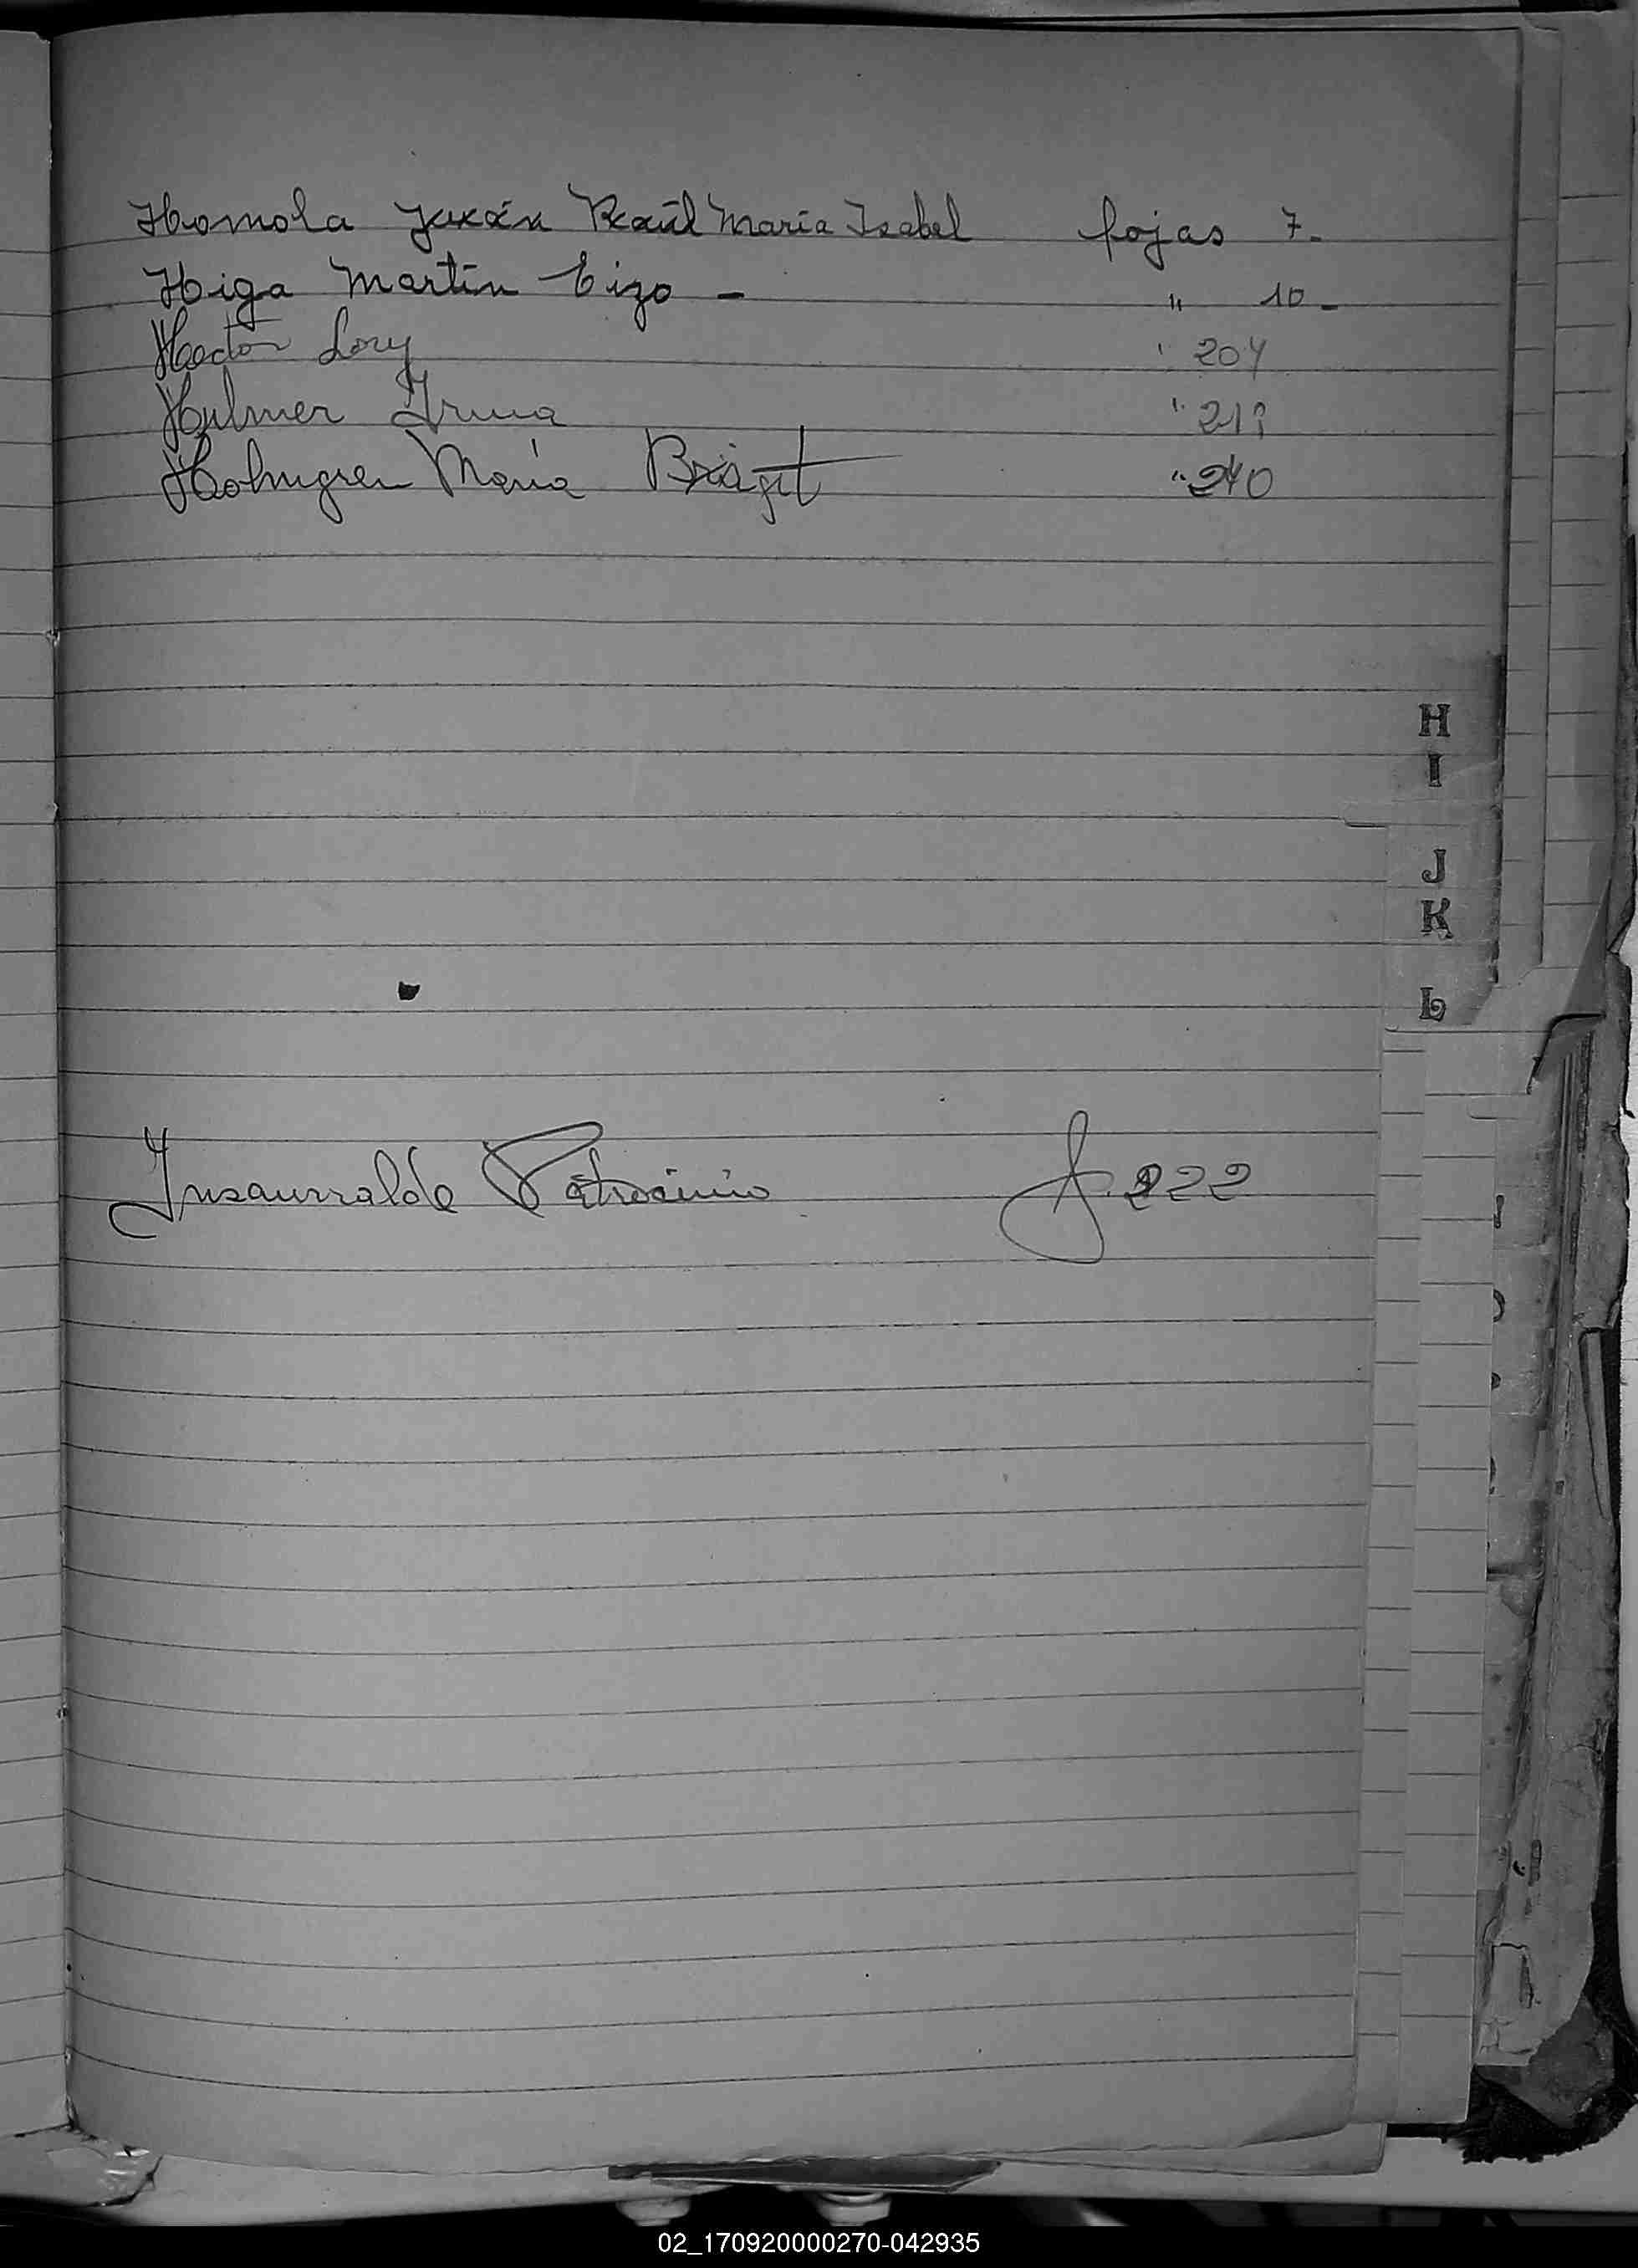 Homola Juan Raúl María Isabel fojas 7.-
Higa Martín Eizo - " 10 -
Hector Lory " 204
Hulmer Irma "
Holmgren María Brigit " 240
H
I
J
K
L
Insaurralde Patrocinio f. 222
02_170920000270-042935